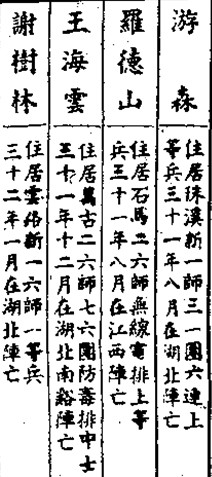 游森
住居珠溪新一師三一團六連上
等兵三十一年八月在湖北陣亡
羅德山
住居石馬二六師無線電排上等
兵三十一年八月在江西陣亡
王海雲
住居萬古二六師七六團防毒排中士
三十一年十二月在湖北南谿陣亡
謝樹林
住居雲路新一六師一等兵
三十二年一月在湖北陣亡